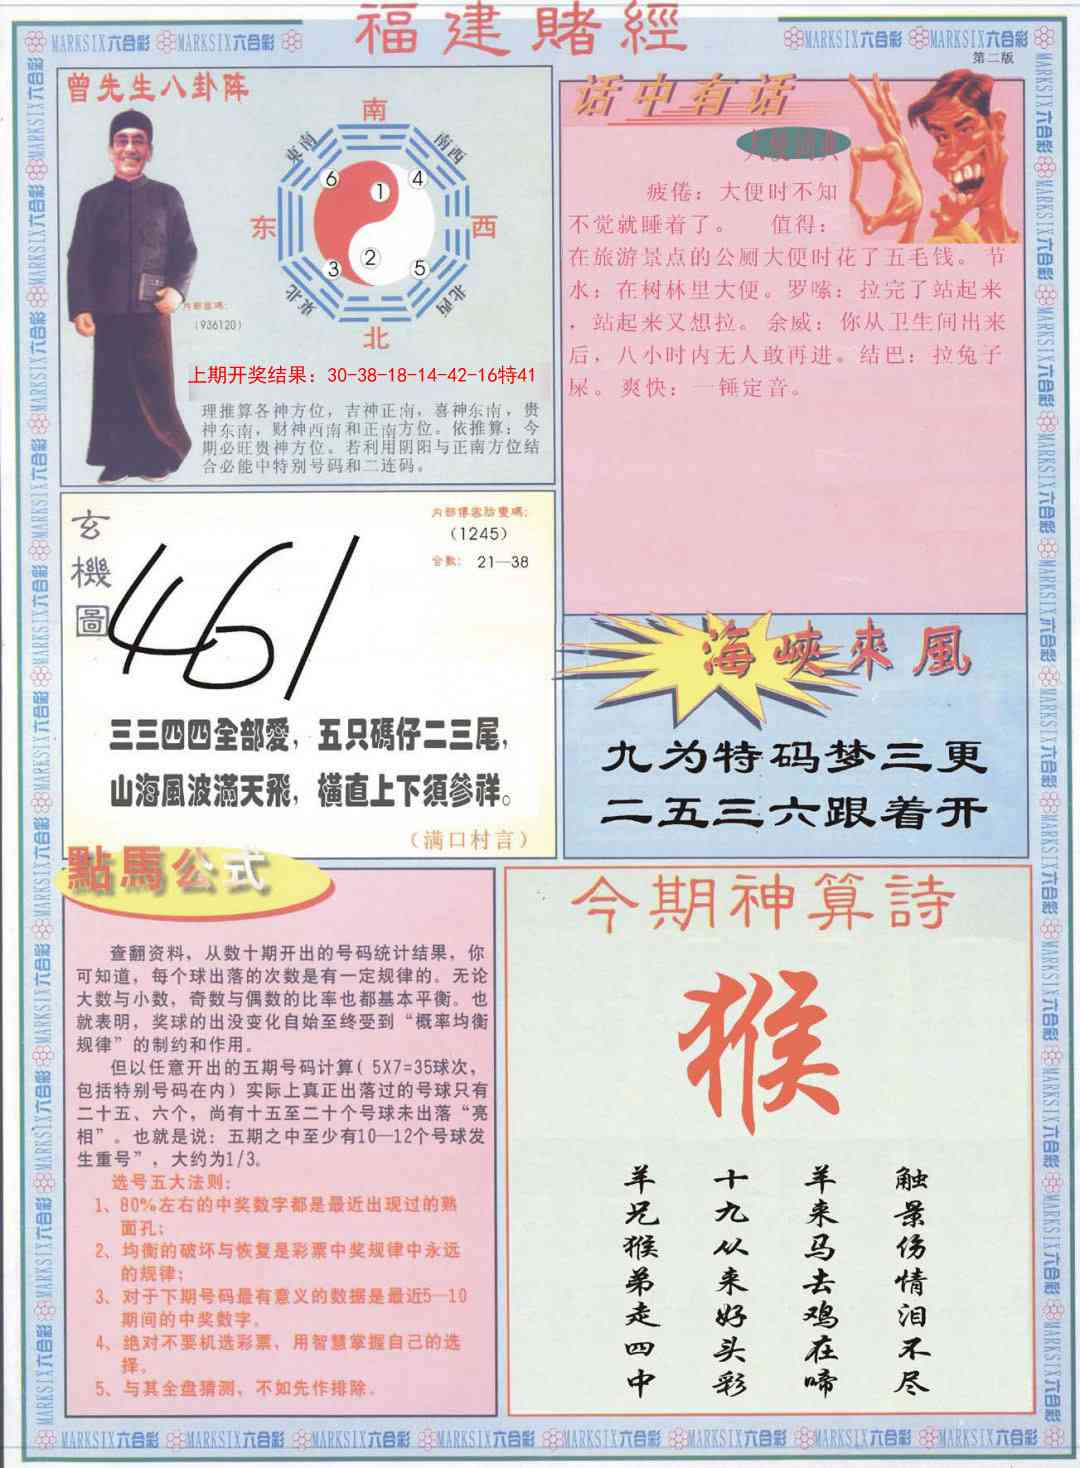 福建賭經
MARKSIX六合彩 MARKSIX六合彩
MARKSIX六合彩 MARKSIX六合彩
第二版
曾先生八卦阵
南
東南
南西
6
1
4
东
西
3
2
5
東北
北西
北
(936120)
上期开奖结果：30-38-18-14-42-16特41
理推算各神方位，吉神正南，喜神东南，贵
神东南，财神西南和正南方位。依推算：今
期必旺贵神方位。若利用阴阳与正南方位结
合必能中特别号码和二连码。
话中有话
疲倦：大便时不知
不觉就睡着了。 值得：
在旅游景点的公厕大便时花了五毛钱。节
水：在树林里大便。罗嗦：拉完了站起来
，站起来又想拉。余威：你从卫生间出来
后，八小时内无人敢再进。结巴：拉兔子
屎。爽快：一锤定音。
玄機圖
(1245)
合数： 21—38
461
三三四四全部愛，五只碼仔二三尾，
山海風波滿天飛，橫直上下須參祥。
（满口村言）
海峽來風
九为特码梦三更
二五三六跟着开
點馬公式
查翻资料，从数十期开出的号码统计结果，你
可知道，每个球出落的次数是有一定规律的。无论
大数与小数，奇数与偶数的比率也都基本平衡。也
就表明，奖球的出没变化自始至终受到“概率均衡
规律”的制约和作用。
但以任意开出的五期号码计算( 5X7=35球次，
包括特别号码在内）实际上真正出落过的号球只有
二十五、六个，尚有十五至二十个号球未出落“亮
相”。也就是说：五期之中至少有10—12个号球发
生重号”，大约为1/3。
选号五大法则：
1、80%左右的中奖数字都是最近出现过的熟
面孔；
2、均衡的破坏与恢复是彩票中奖规律中永远
的规律；
3、对于下期号码最有意义的数据是最近5—10
期间的中奖数字。
4、绝对不要机选彩票，用智慧掌握自己的选
择。
5、与其全盘猜测，不如先作排除。
今期神算詩
猴
触景伤情泪不尽
羊来马去鸡在啼
十九从来好头彩
羊兄猴弟走四中
MARKSIX六合彩 MARKSIX六合彩 MARKSIX六合彩 MARKSIX六合彩 MARKSIX六合彩 MARKSIX六合彩 MARKSIX六合彩 MARKSIX六合彩